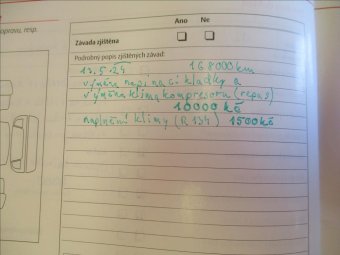 opravu, resp.
Ano Ne
Závada zjištěna
Podrobný popis zjištěných závad:
13.5.24 168000km
výměna napínací kladky a
výměna klima kompresoru (repas)
10000 kč
naplnění klimy (R134) 1500 kč